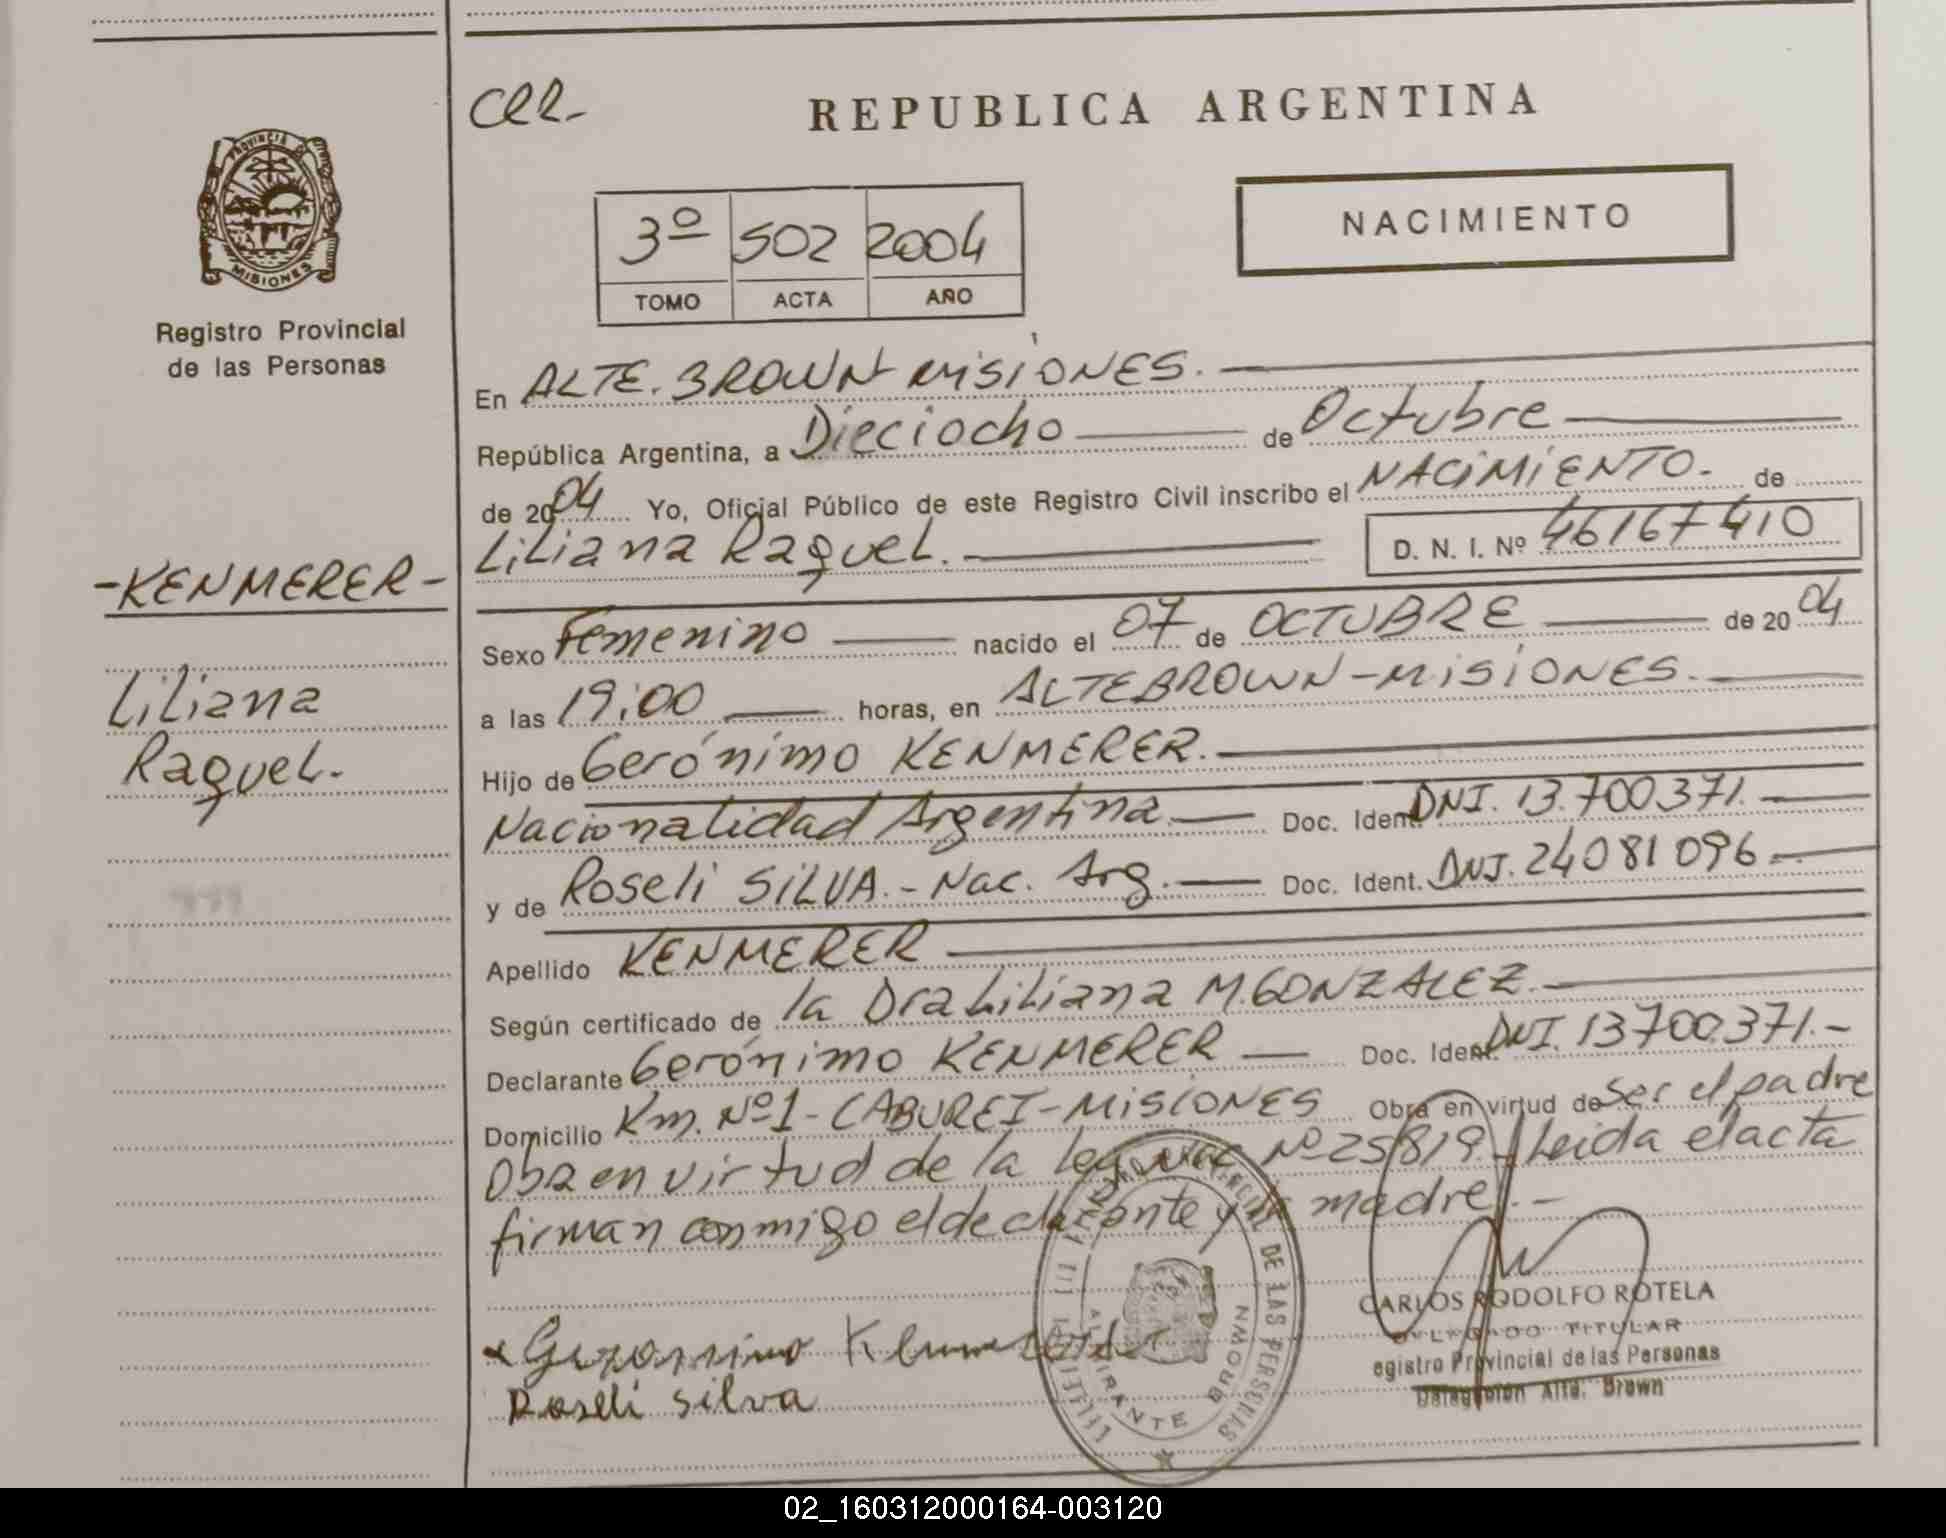 CER-
REPUBLICA ARGENTINA
NACIMIENTO
3º 502 2004
TOMO ACTA AÑO
PROVINCIA DE
MISIONES
Registro Provincial
de las Personas
-KENMERER-
Liliana
Raquel.-
En ALTE. BROWN MISIONES.
República Argentina, a Dieciocho de Octubre
de 2004 Yo, Oficial Público de este Registro Civil inscribo el NACIMIENTO.- de
Liliana Raquel. D. N. I. Nº 46167410
Sexo Femenino nacido el 07 de OCTUBRE de 2004
a las 19:00 horas, en ALTE BROWN-MISIONES.
Hijo de Gerónimo KENMERER.
Nacionalidad Argentina. Doc. Ident. DNI. 13.700.371.
y de Roseli SILVA.- Nac. Arg. Doc. Ident. DNI. 24081096
Apellido KENMERER
Según certificado de la Dra Liliana M. GONZALEZ.
Declarante Gerónimo KENMERER Doc. Ident. DNI. 13700.371.-
Domicilio Km. Nº1- CABUREI-MISIONES Obra en virtud de Ser el padre
Obra en virtud de la Ley Nac Nº 25819.- Leida el acta
firman conmigo el declarante y la madre.-
Geronimo
Roseli Silva
DE LAS PERSONAS
ALMIRANTE BROWN
CARLOS RODOLFO ROTELA
DELEGADO TITULAR
egistro Provincial de las Personas
Delegación Alte. Brown
02_160312000164-003120